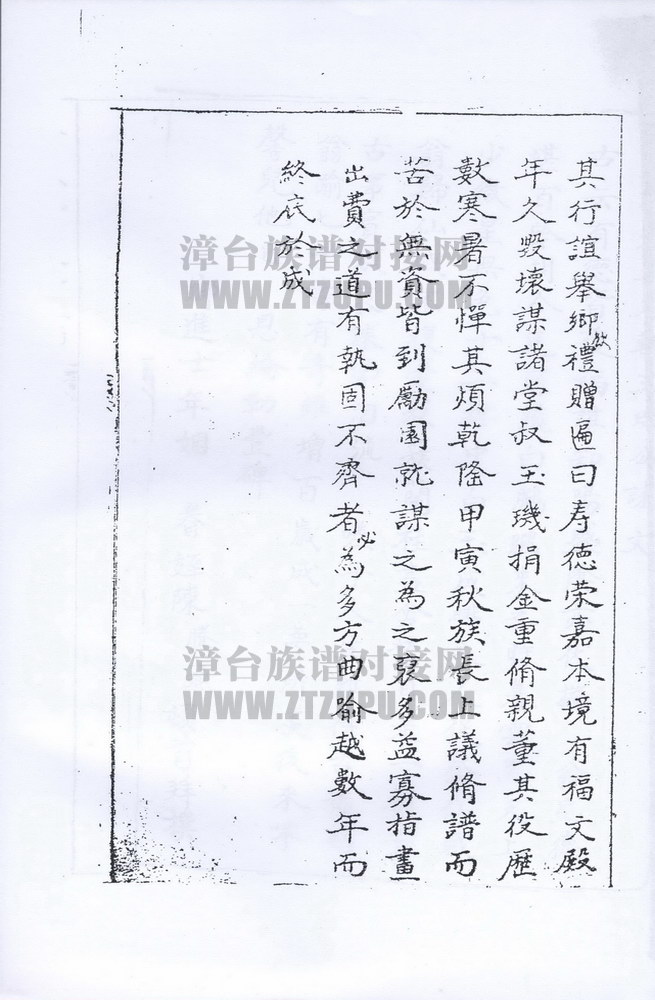 其行誼舉鄉飲禮贈匾曰寿德荣嘉本境有福文殿
年久毀壞謀諸堂叔玉璣捐金重脩親董其役歷
數寒暑不憚其煩乾隆甲寅秋族長上議脩譜而
苦於無資皆到勵園就謀之為之裒多益寡指畫
出費之道有執固不齊者必為多方曲喻越数年而
終底於成
漳台族谱对接网
WWW.ZTZUPU.COM
漳台族谱对接网
WWW.ZTZUPU.COM